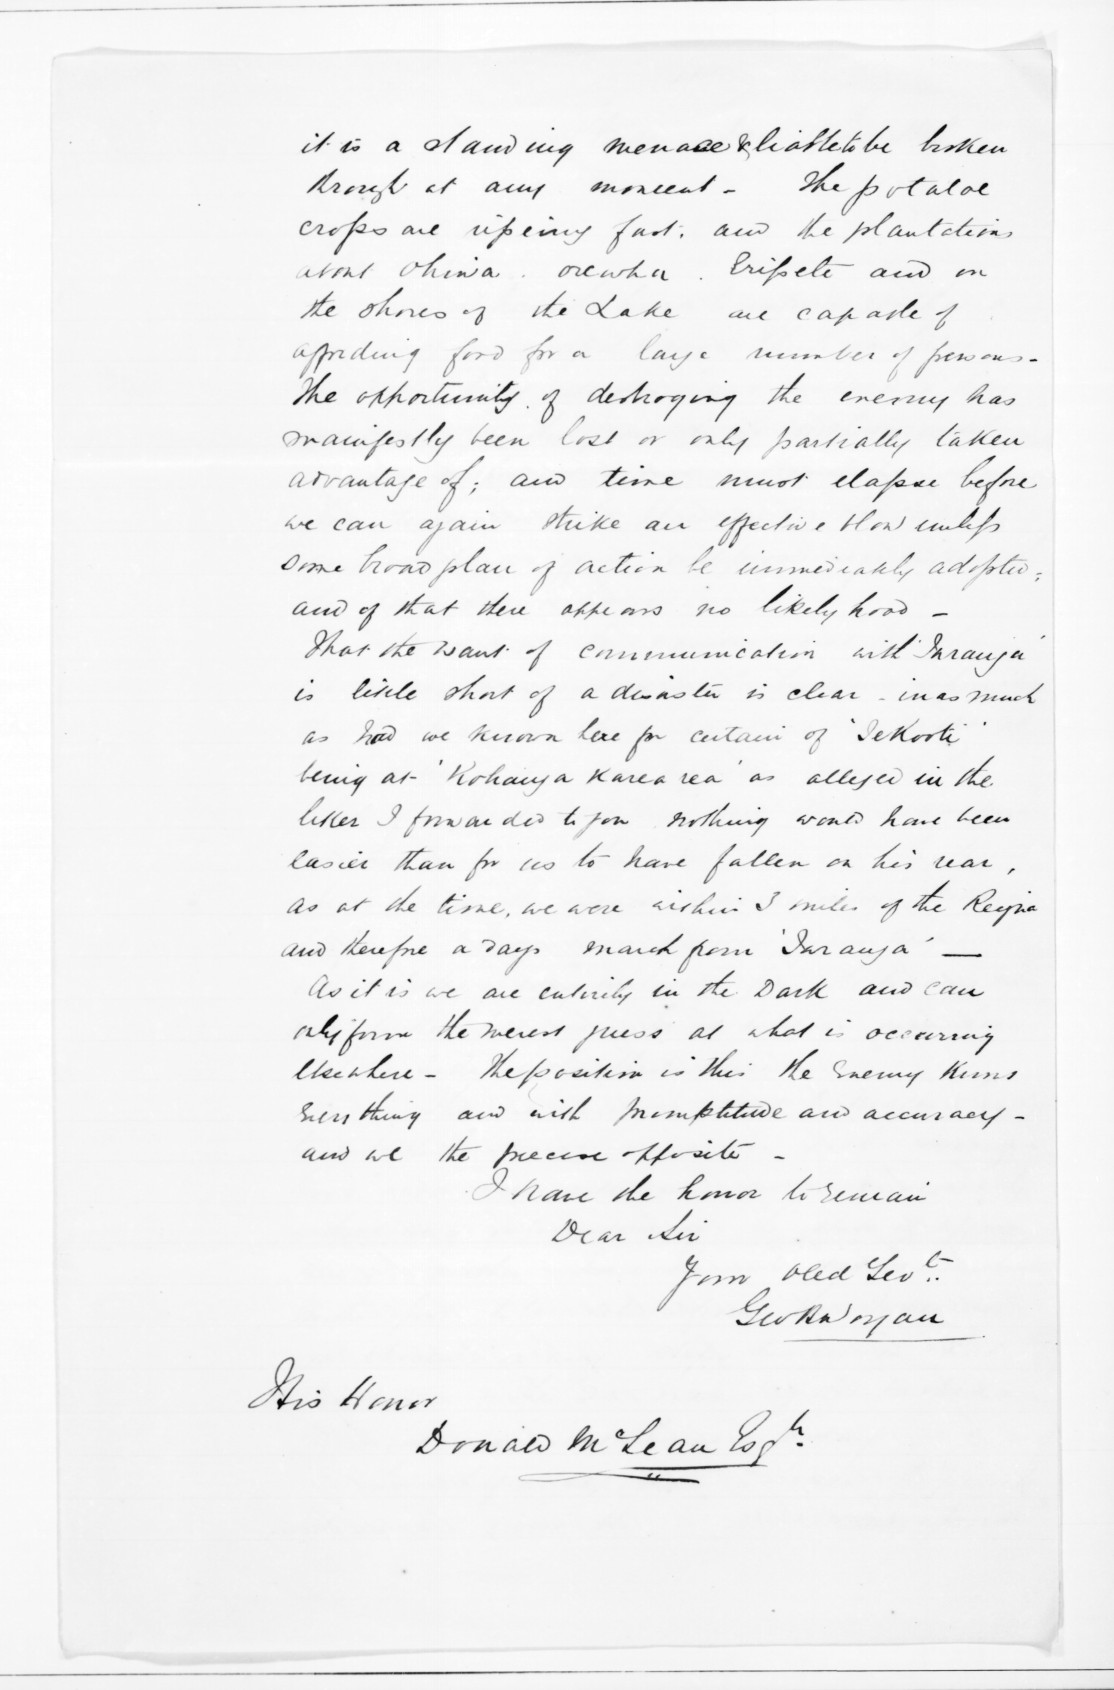 it is a standing menace & liable to be broken
through at any moment - The potatoe
crops are ripeing fast. and the plantations
about Ohiwa . orewha . Eripete and on
the shores of the Lake are capable of
affording food for a large number of persons -
The opportunity of destroying the enemy has
manifestly been lost or only partially taken
advantage of; and time must elapse before
we can again strike an effective blow unless
some broad plan of action be immediately adopted;
and of that there appears no likely hood -
That the want of communication with 'Turanga'
is little short of a disaster is clear - in as much
as had we known here for certain of 'TeKooti'
being at 'Kohanga Karearea' as alleged in the
letter I forwarded to you nothing would have been
easier than for us to have fallen on his rear,
as at the time, we were within 3 miles of the Reinga
and therefore a days march from 'Turanga' —
As it is we are entirely in the Dark and can
only form the merest guess at what is occurring
elsewhere - The position is this the Enemy knows
Everything and with promptitude and accuracy -
and we the precise opposite -
I have the honor to remain
Dear Sir
Your Obed Servt.
Geo B Worgan
His Honor
Donald McLean Esqr.